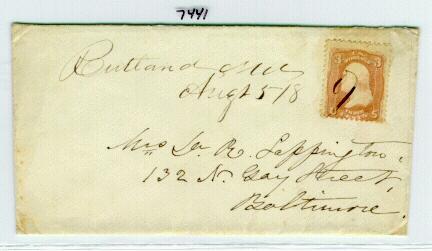 7441
Rutland Md
Augt 5/8
3 3
Mrs Dr. R. Sappington,
132 N. Gay Street,
Baltimore.